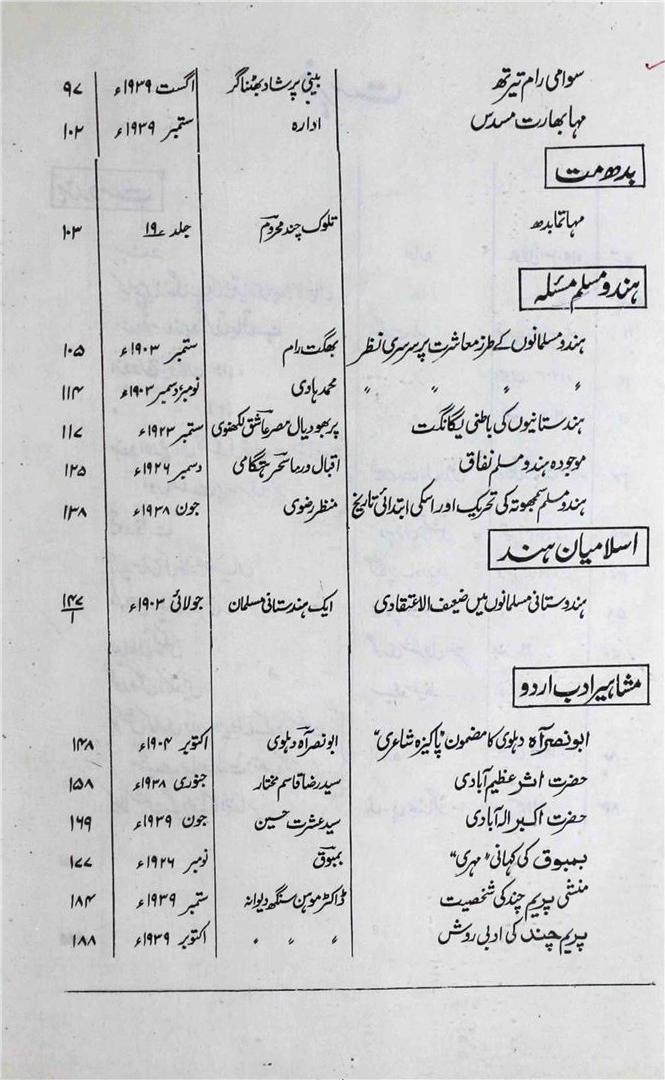 سوامی رام تیرتھ بینی پرشاد بھٹناگر اگست ۱۹۳۹ء ۹۷
مہا بھارت مسدس ادارہ ستمبر ۱۹۳۹ء ۱۰۲
بدھ مت
مہاتما بدھ تلوک چند محروم جلد ۱۹ ۱۰۳
ہندو مسلم مسئلہ
ہندو مسلمانوں کے طرز معاشرت پر سرسری نظر بھگت رام ستمبر ۱۹۰۳ء ۱۰۵
〃 〃 〃 محمد ہادی نومبر؍دسمبر ۱۹۰۳ء ۱۱۴
ہندستانیوں کی باطنی یگانگت پربھو دیال مصر عاشق لکھنوی ستمبر ۱۹۲۳ء ۱۱۷
موجودہ ہندو مسلم نفاق اقبال ورما سحر ہتگامی دسمبر ۱۹۲۶ء ۱۲۵
ہندو مسلم سمجھوتہ کی تحریک اور اسکی ابتدائی تاریخ منظر رضوی جون ۱۹۳۸ء ۱۳۸
اسلامیان ہند
ہندوستانی مسلمانوں میں ضعیف الاعتقادی ایک ہندستانی مسلمان جولائی ۱۹۰۳ء ۱۴۷/۱
مشاہیر ادب اردو
ابونصر آہ دہلوی کا مضمون "پاکیزہ شاعری" ابونصر آہ دہلوی اکتوبر ۱۹۰۴ء ۱۴۸
حضرت اثر عظیم آبادی سید رضا قاسم مختار جنوری ۱۹۳۸ء ۱۵۸
حضرت اکبر الہ آبادی سید عشرت حسین جون ۱۹۳۹ء ۱۶۹
بمبوق کی کہانی "مہری" بمبوق نومبر ۱۹۲۶ء ۱۷۷
منشی پریم چند کی شخصیت ڈاکٹر موہن سنگھ دیوانہ ستمبر ۱۹۳۹ء ۱۸۴
پریم چند کی ادبی روش 〃 〃 〃 اکتوبر ۱۹۳۹ء ۱۸۸